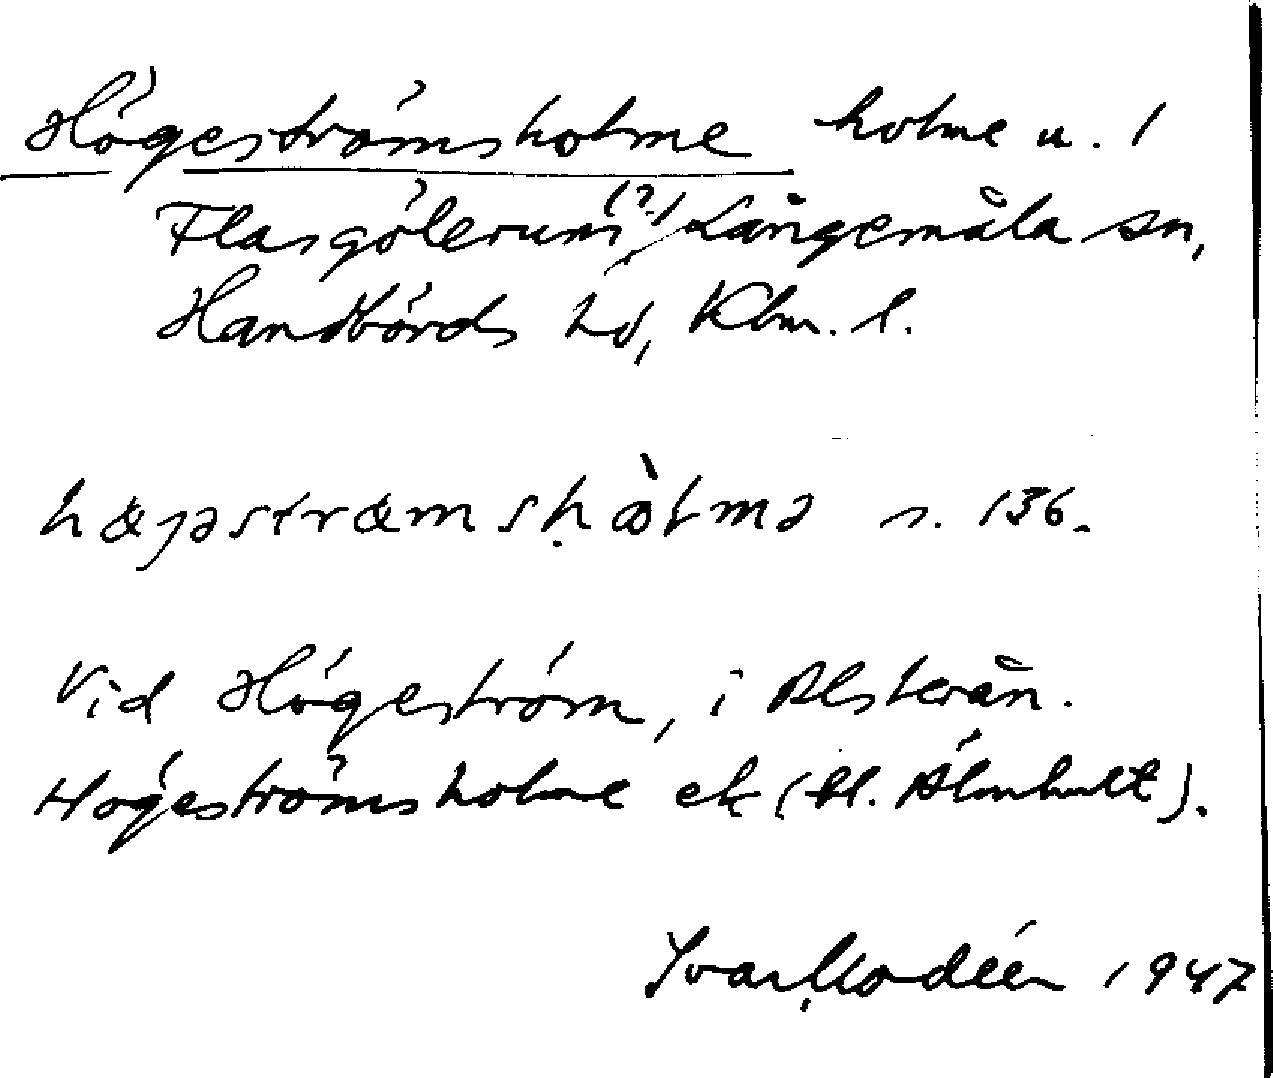 Högeströmsholme holme u. 1
Flasgölerum (?) Långemåla sn,
Handbörds hd, Klm. l.
høȷəstrømshòlmə s. 136.
Vid Högeström, i Alsterån.
Högeströmsholme ek (bl. Älmhult).
Ivar Modéer 1947